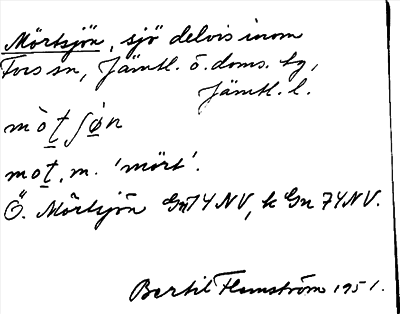 Mörtsjön, sjö delvis inom
Fors sn, Jämtl. ö. doms. tg,
Jämtl. l.
mòt̲ʃǿ̲n
mot̲, m. 'mört'.
Ö. Mörtsjön Gn 74 NV, k Gn 74 NV.
Bertil Flemström 1951.